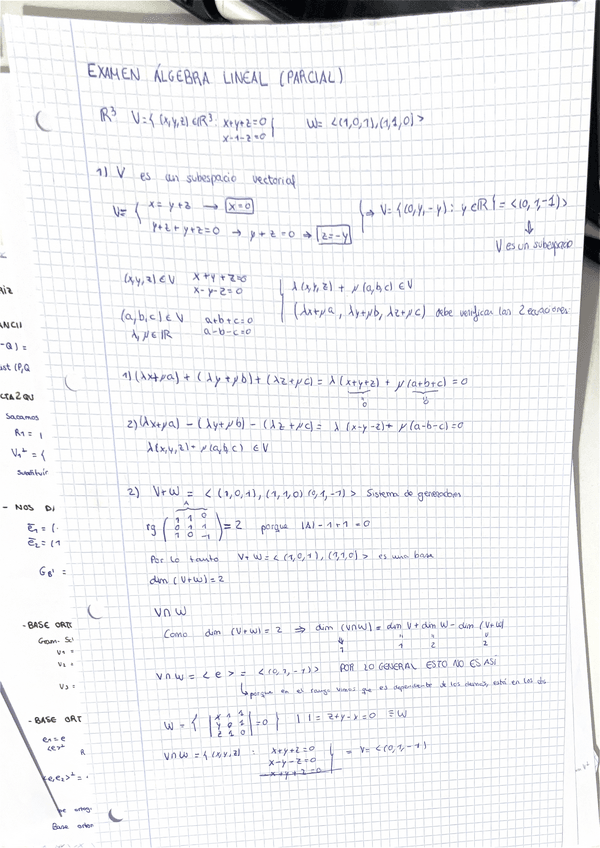 EXAMEN ÁLGEBRA LINEAL (PARCIAL)
ℝ³ V={(x,y,z)∈ℝ³: x+y+z=0
x-1-z=0} W= <(1,0,1),(1,1,0)>
1) V es un subespacio vectorial
V= { x = y+z → x=0
y+z+y+z=0 → y+z=0 → z=-y } ⇒ V={(0,y,-y): y∈ℝ} = <(0,1,-1)>
⇓
V es un subespacio
(x,y,z)∈V x+y+z=0
x-y-z=0
(a,b,c)∈V a+b+c=0
λ,μ∈ℝ a-b-c=0
λ(x,y,z) + μ(a,b,c) ∈V
(λx+μa, λy+μb, λz+μc) debe verificar las 2 ecuaciones
1) (λx+μa) + (λy+μb) + (λz+μc) = λ(x+y+z) + μ(a+b+c) = 0
0 0
2) (λx+μa) - (λy+μb) - (λz+μc) = λ(x-y-z)+ μ(a-b-c)=0
λ(x,y,z)+ μ(a,b,c) ∈V
2) V+W = <(1,0,1), (1,1,0) (0,1,-1)> Sistema de generadores
A
rg (1 1 0
0 1 1
1 0 -1) = 2 porque |A|-1+1=0
Por lo tanto V+W=<(1,0,1), (1,1,0)> es una base
dim (V+W)=2
V∩W
Como dim (V+W)=2 ⇒ dim (V∩W)= dim V + dim W - dim (V+W)
1 1 2 2
V∩W = <e> = <(0,1,-1)> POR LO GENERAL ESTO NO ES ASÍ
porque en el rango vimos que es dependiente de los demás, está en los dos
W = { |x 1 1
y 0 1
z 1 0| =0} | | = z+y-x=0 ≡W
V∩W={(x,y,z) : x+y+z=0
x-y-z=0
-x+y+z=0} = V=<(0,1,-1)>
Sacamos
R1 =
V₁² = {
Sustituir
- NOS D
e₁ = (
e₂ = (1
G_B' =
-BASE ORT
Gram-Sc
v₁ =
v₂ =
v₃ =
-BASE ORT
e₁=e
<e,e₂>² =
Base orton